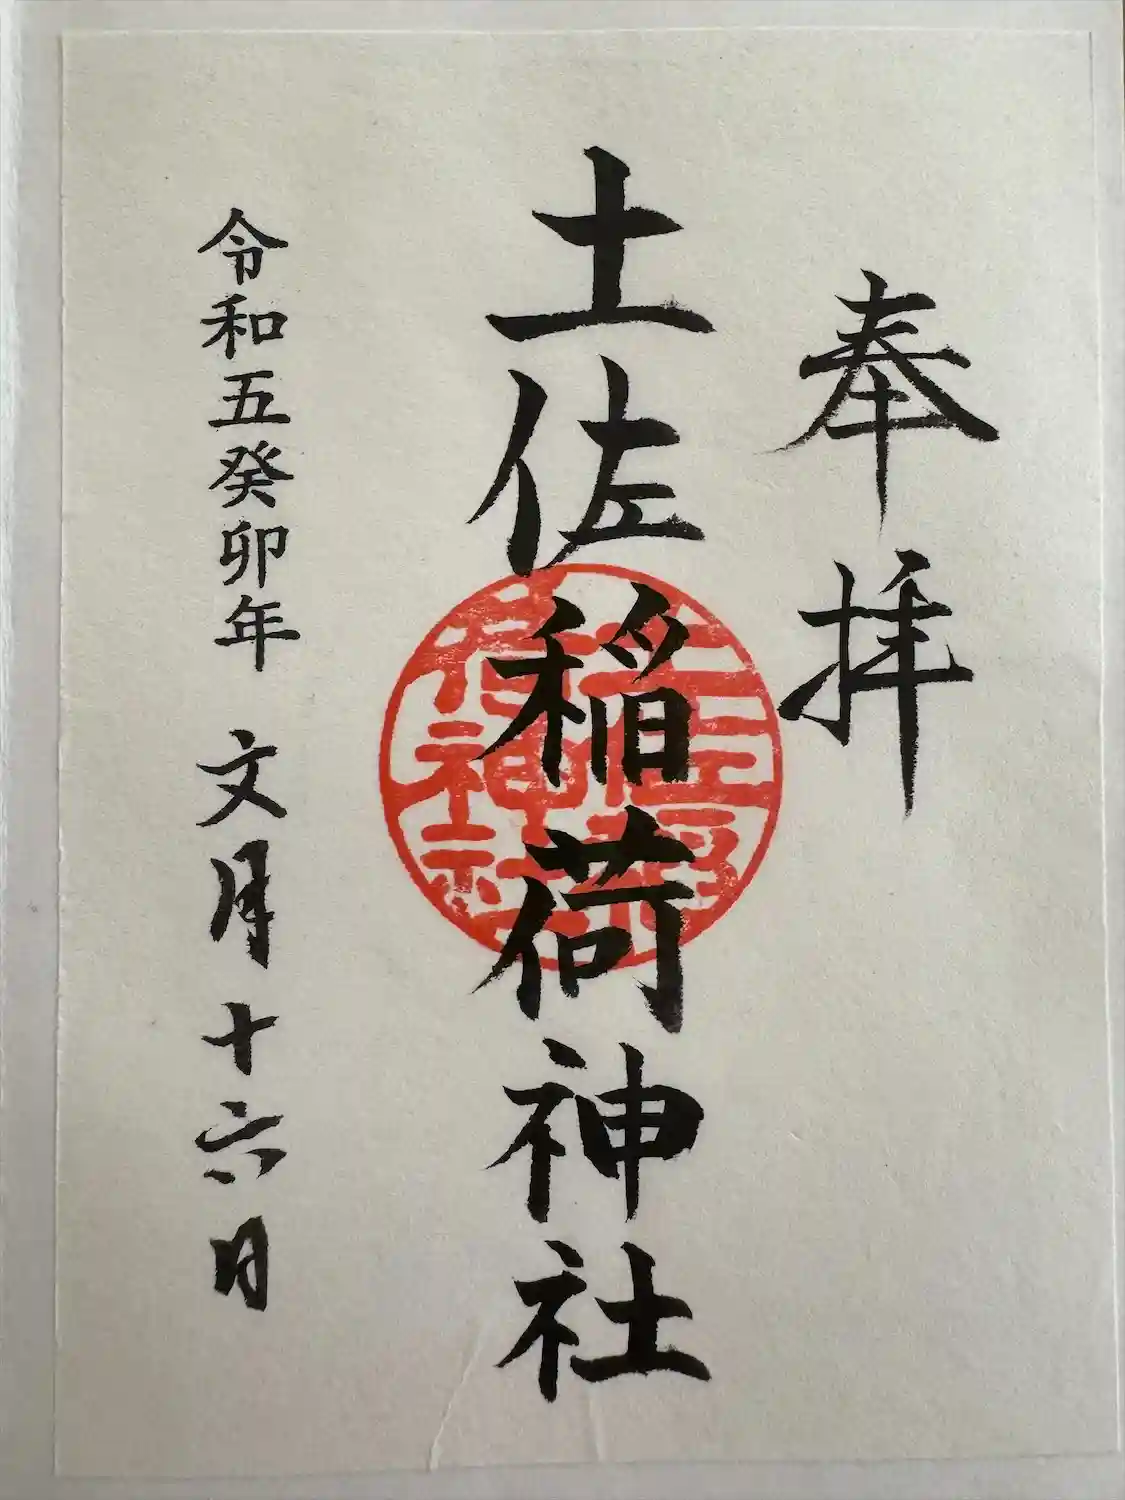 奉拝
土佐稲荷神社
土佐稲荷神社
令和五癸卯年 文月十六日